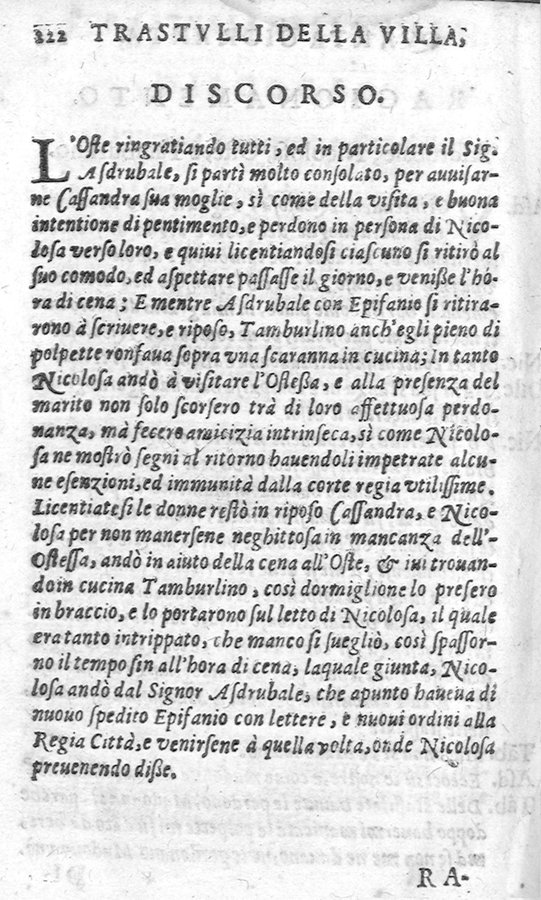 222 TRASTVLLI DELLA VILLA,
DISCORSO.
L'Oste ringratiando tutti, ed in particolare il Sig.
Asdrubale, si partì molto consolato, per auuisar-
ne Cassandra sua moglie, sì come della visita, e buona
intentione di pentimento, e perdono in persona di Nico-
losa verso loro, e quiui licentiandosi ciascuno si ritirò al
suo comodo, ed aspettare passasse il giorno, e venisse l'ho-
ra di cena; E mentre Asdrubale con Epifanio si ritira-
rono à scriuere, e riposo, Tamburlino anch'egli pieno di
polpette ronfaua sopra vna scaranna in cucina; In tanto
Nicolosa andò à visitare l'Ostessa, e alla presenza del
marito non solo scorsero trà di loro affettuosa perdo-
nanza, mà fecero amicizia intrinseca, sì come Nicolo-
sa ne mostrò segni al ritorno hauendoli impetrate alcu-
ne esenzioni, ed immunità dalla corte regia vtilissime.
Licentiatesi le donne restò in riposo Cassandra, e Nico-
losa per non manersene neghittosa in mancanza dell'-
Ostessa, andò in aiuto della cena all'Oste, & iui trouan-
do in cucina Tamburlino, così dormiglione lo presero
in braccio, e lo portarono sul letto di Nicolosa, il quale
era tanto intrippato, che manco si suegliò, così spassor-
no il tempo sin all'hora di cena, laquale giunta, Nico-
losa andò dal Signor Asdrubale, che apunto haueua di
nuouo spedito Epifanio con lettere, e nuoui ordini alla
Regia Città, e venirsene à quella volta, onde Nicolosa
preuenendo disse.
RA-